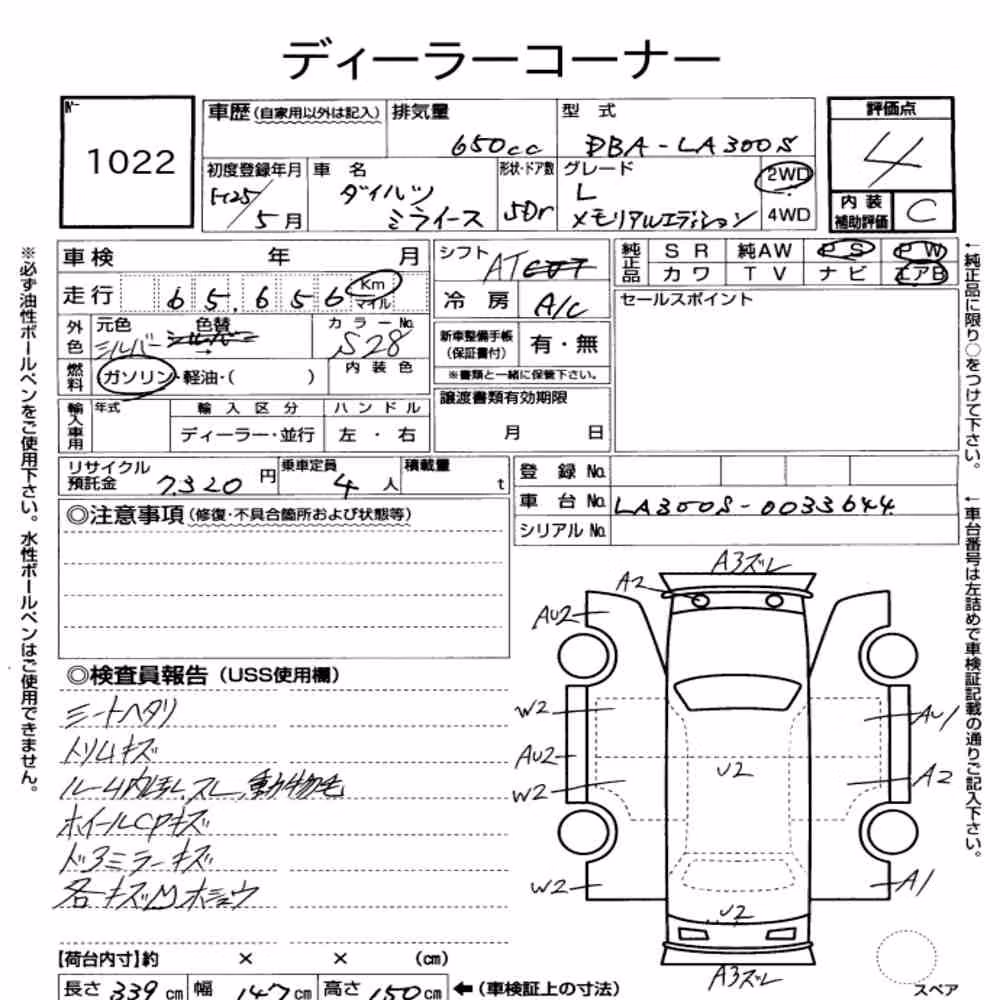 ディーラーコーナー
No. 1022
車歴(自家用以外は記入)
排気量 650cc
型式 DBA-LA300S
評価点 4
初度登録年月 H25/5月
車名 ダイハツ ミライース
形状・ドア数 5Dr
グレード L メモリアルエディション
2WD
4WD
内装補助評価 C
車検 年 月
シフト AT
純正品 SR 純AW PS PW
カワ TV ナビ エアB
走行 65,656 Km マイル
冷房 A/C
セールスポイント
外色 元色 シルバー 色替 → カラーNo. S28
新車整備手帳(保証書付) 有・無
※書類と一緒に保管下さい。
燃料 ガソリン・軽油・( ) 内装色
譲渡書類有効期限 月 日
輸入車用 年式 輸入区分 ハンドル
ディーラー・並行 左・右
リサイクル預託金 7,320円 乗車定員 4人 積載量 t
登録No.
車台No. LA300S-0033644
シリアルNo.
◎注意事項(修復・不具合箇所および状態等)
◎検査員報告(USS使用欄)
シートヘタリ
トリムキズ
ルーム内ヨゴレ、スレ、動物毛
ホイールCPキズ
ドアミラーキズ
各キズ
A3ズレ
A2
AU2
W2
AU1
AU2
U2
A2
W2
W2
A1
U2
A3ズレ
スペア
【荷台内寸】約 × × (cm)
長さ 339cm 幅 147cm 高さ 150cm ←(車検証上の寸法)
※必ず油性ボールペンをご使用下さい。水性ボールペンはご使用できません。
←純正品に限り○をつけて下さい。
←車台番号は左詰めで車検証記載の通りご記入下さい。